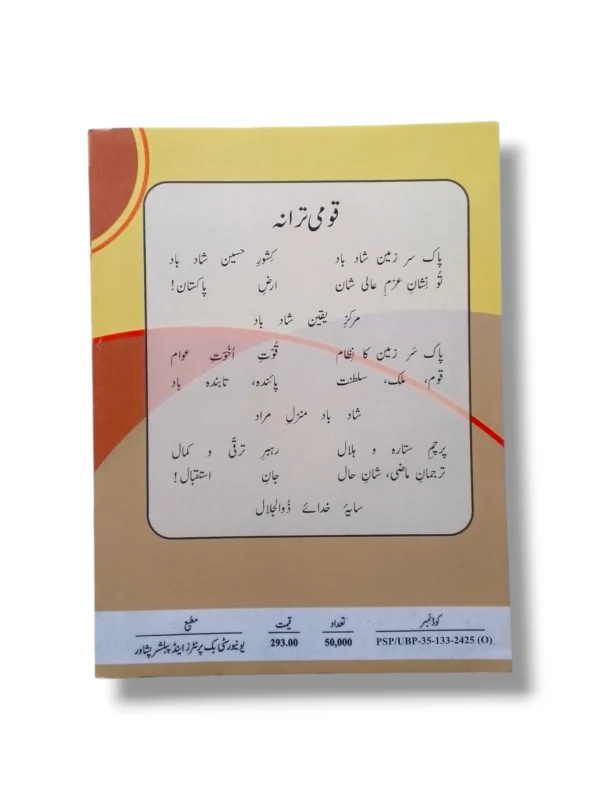 قومی ترانہ
پاک سر زمین شاد باد کِشورِ حسین شاد باد
تُو نِشانِ عزمِ عالی شان ارضِ پاکستان!
مرکزِ یقین شاد باد
پاک سَر زمین کا نِظام قُوّتِ اُخُوّتِ عوام
قوم، ملک، سلطنت پائندہ، تابندہ باد
شاد باد منزلِ مراد
پرچمِ ستارہ و ہلال رہبرِ ترقّی و کمال
ترجمانِ ماضی، شانِ حال جانِ استقبال!
سایۂ خدائے ذُوالجلال
کوڈ نمبر تعداد قیمت مطبع
PSP/UBP-35-133-2425 (O) 50,000 293.00 یونیورسٹی بک پرنٹرز اینڈ پبلشرز پشاور